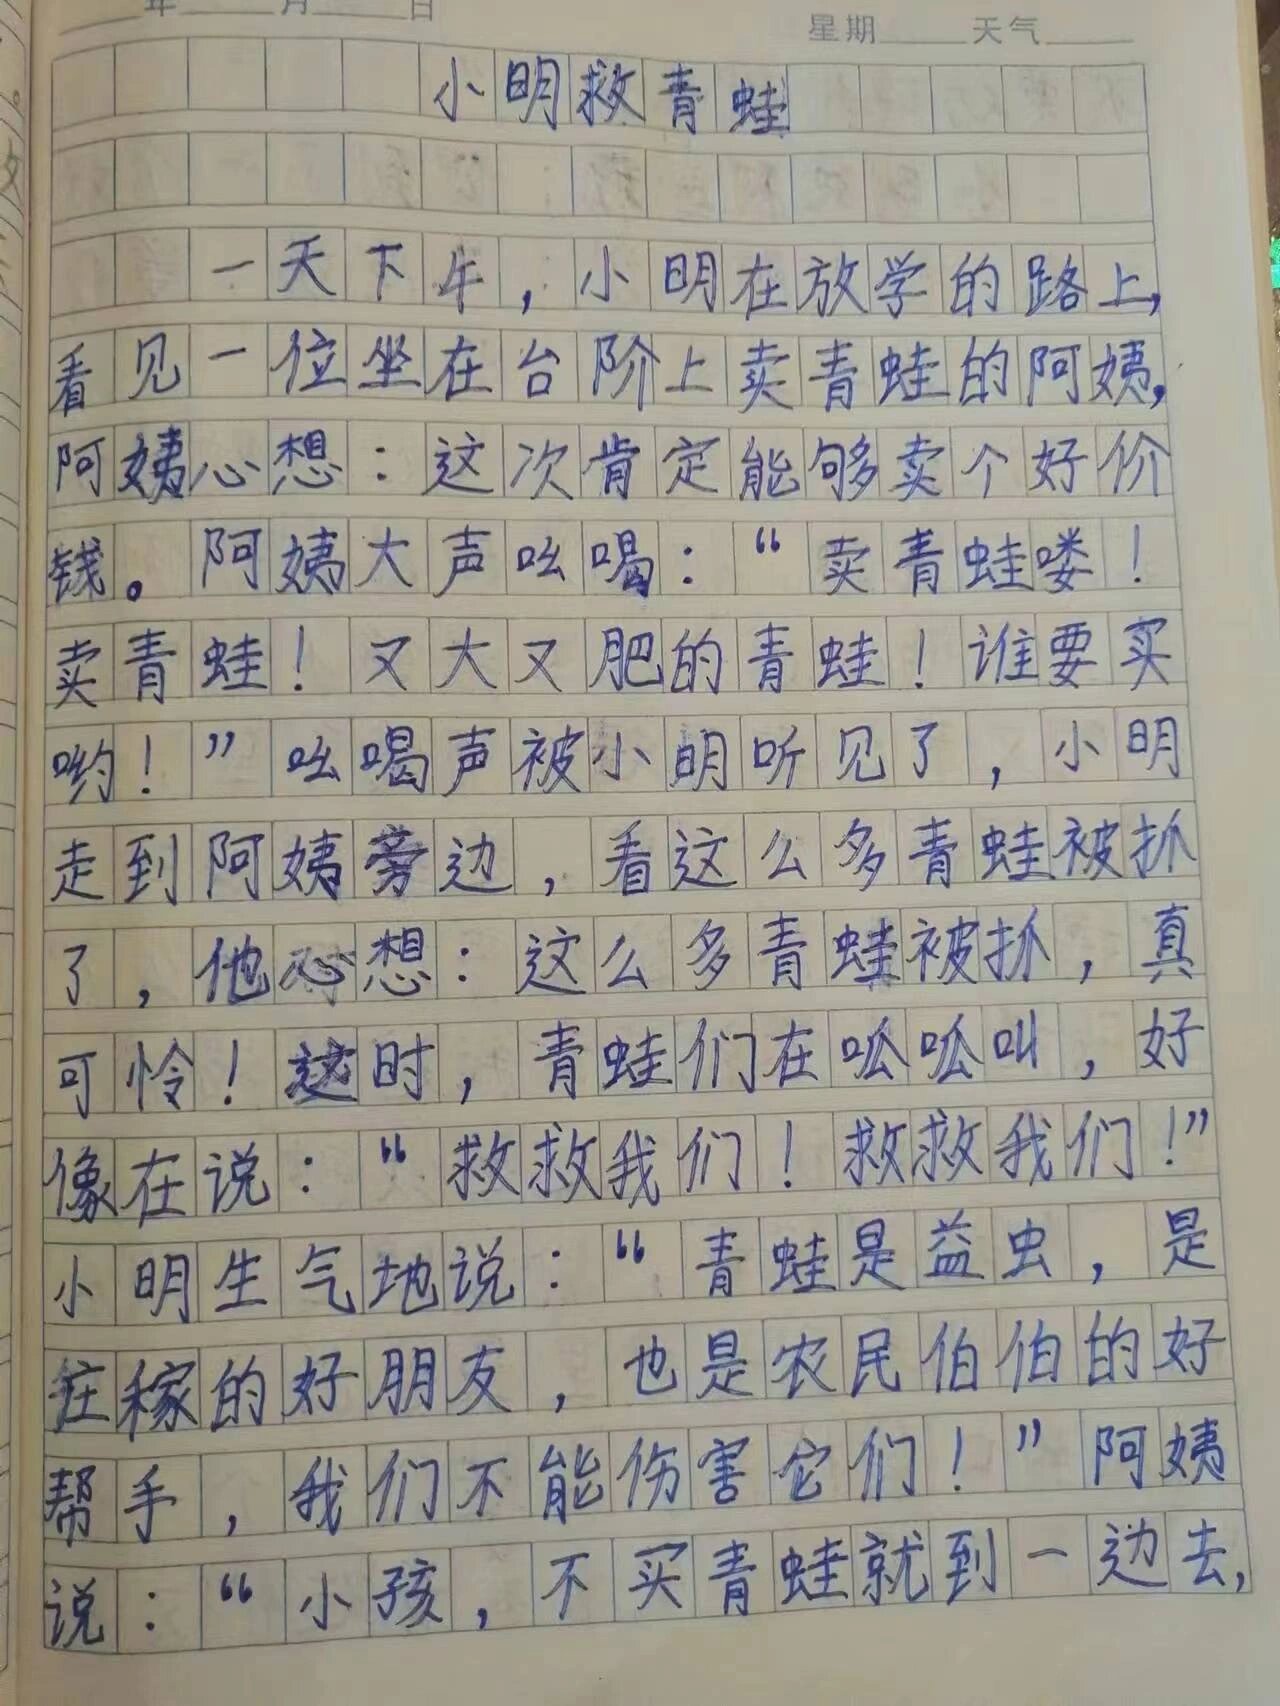 年 月 日 星期 天气
小明救青蛙
一天下午，小明在放学的路上，
看见一位坐在台阶上卖青蛙的阿姨，
阿姨心想：这次肯定能够卖个好价
钱。阿姨大声吆喝：“卖青蛙喽！
卖青蛙！又大又肥的青蛙！谁要买
哟！”吆喝声被小明听见了，小明
走到阿姨旁边，看这么多青蛙被抓
了，他心想：这么多青蛙被抓，真
可怜！这时，青蛙们在呱呱叫，好
像在说：“救救我们！救救我们！”
小明生气地说：“青蛙是益虫，是
庄稼的好朋友，也是农民伯伯的好
帮手，我们不能伤害它们！”阿姨
说：“小孩，不买青蛙就到一边去，